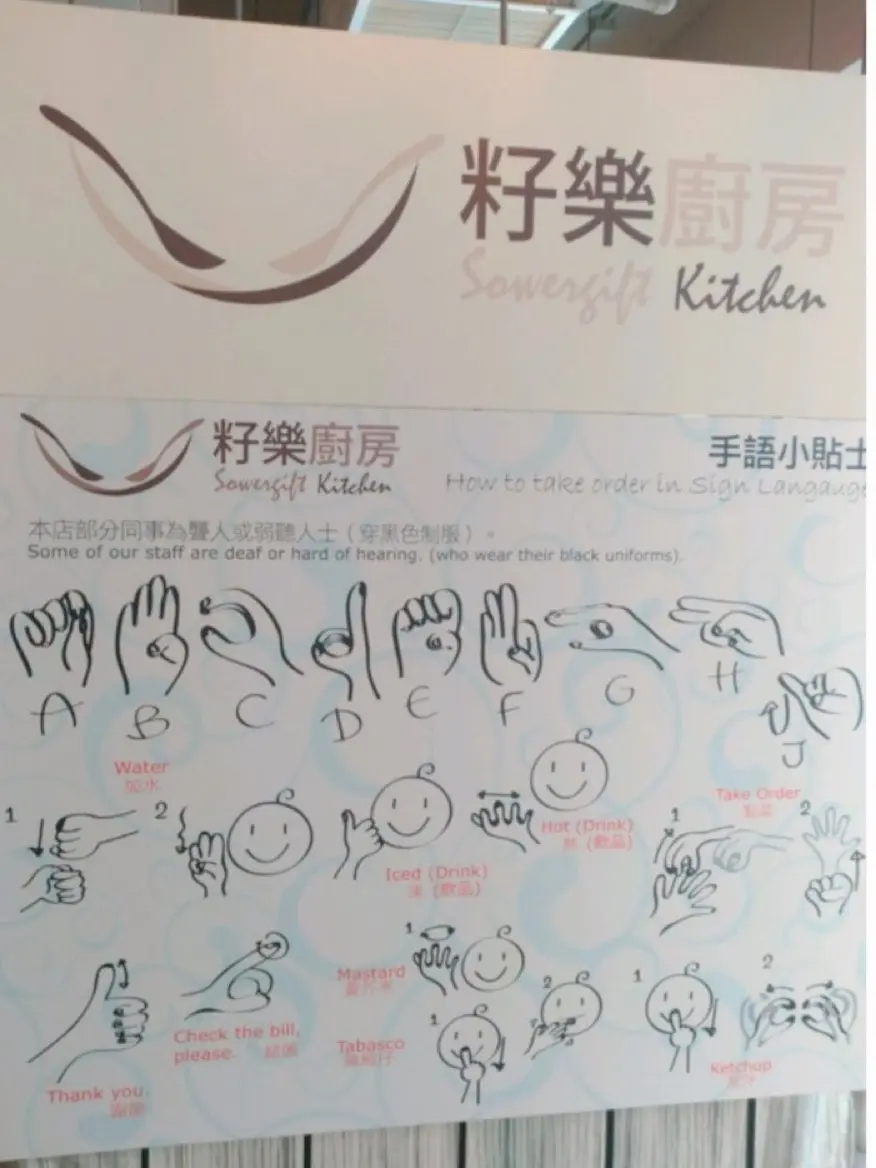 籽樂廚房
Sowergift Kitchen
籽樂廚房
Sowergift Kitchen
手語小貼士
How to take order in Sign Langauge
本店部分同事為聾人或弱聽人士（穿黑色制服）。
Some of our staff are deaf or hard of hearing. (who wear their black uniforms).
A B C D E F G H
J
Water
加水
1 2
Iced (Drink)
凍 (飲品)
Hot (Drink)
熱 (飲品)
Take Order
點菜
1 2
Thank you.
Check the bill,
please.
Mastard
1
Tabasco
1 2
Ketchup
1 2